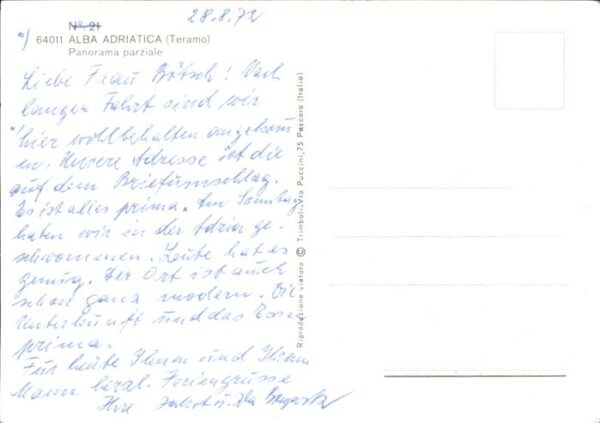 28.8.72
N° 21
64011 ALBA ADRIATICA (Teramo)
Panorama parziale
Liebe Frau Bötsch! Nach
langer Fahrt sind wir
hier wohlbehalten angekom
en. Unsere Adresse ist die
auf dem Briefumschlag.
Es ist alles prima. Am Sonntag
haben wir in der Adria ge-
schwommen. Leute hat es
genug. Der Ort ist auch
schon ganz modern. Die
Unterkunft und das Essen
prima.
Für heute Ihnen und Ihrem
Mann herzl. Feriengrüsse
Ihre
Riproduzione vietata © Trimboli, Via Puccini, 75 Pescara (Italia)